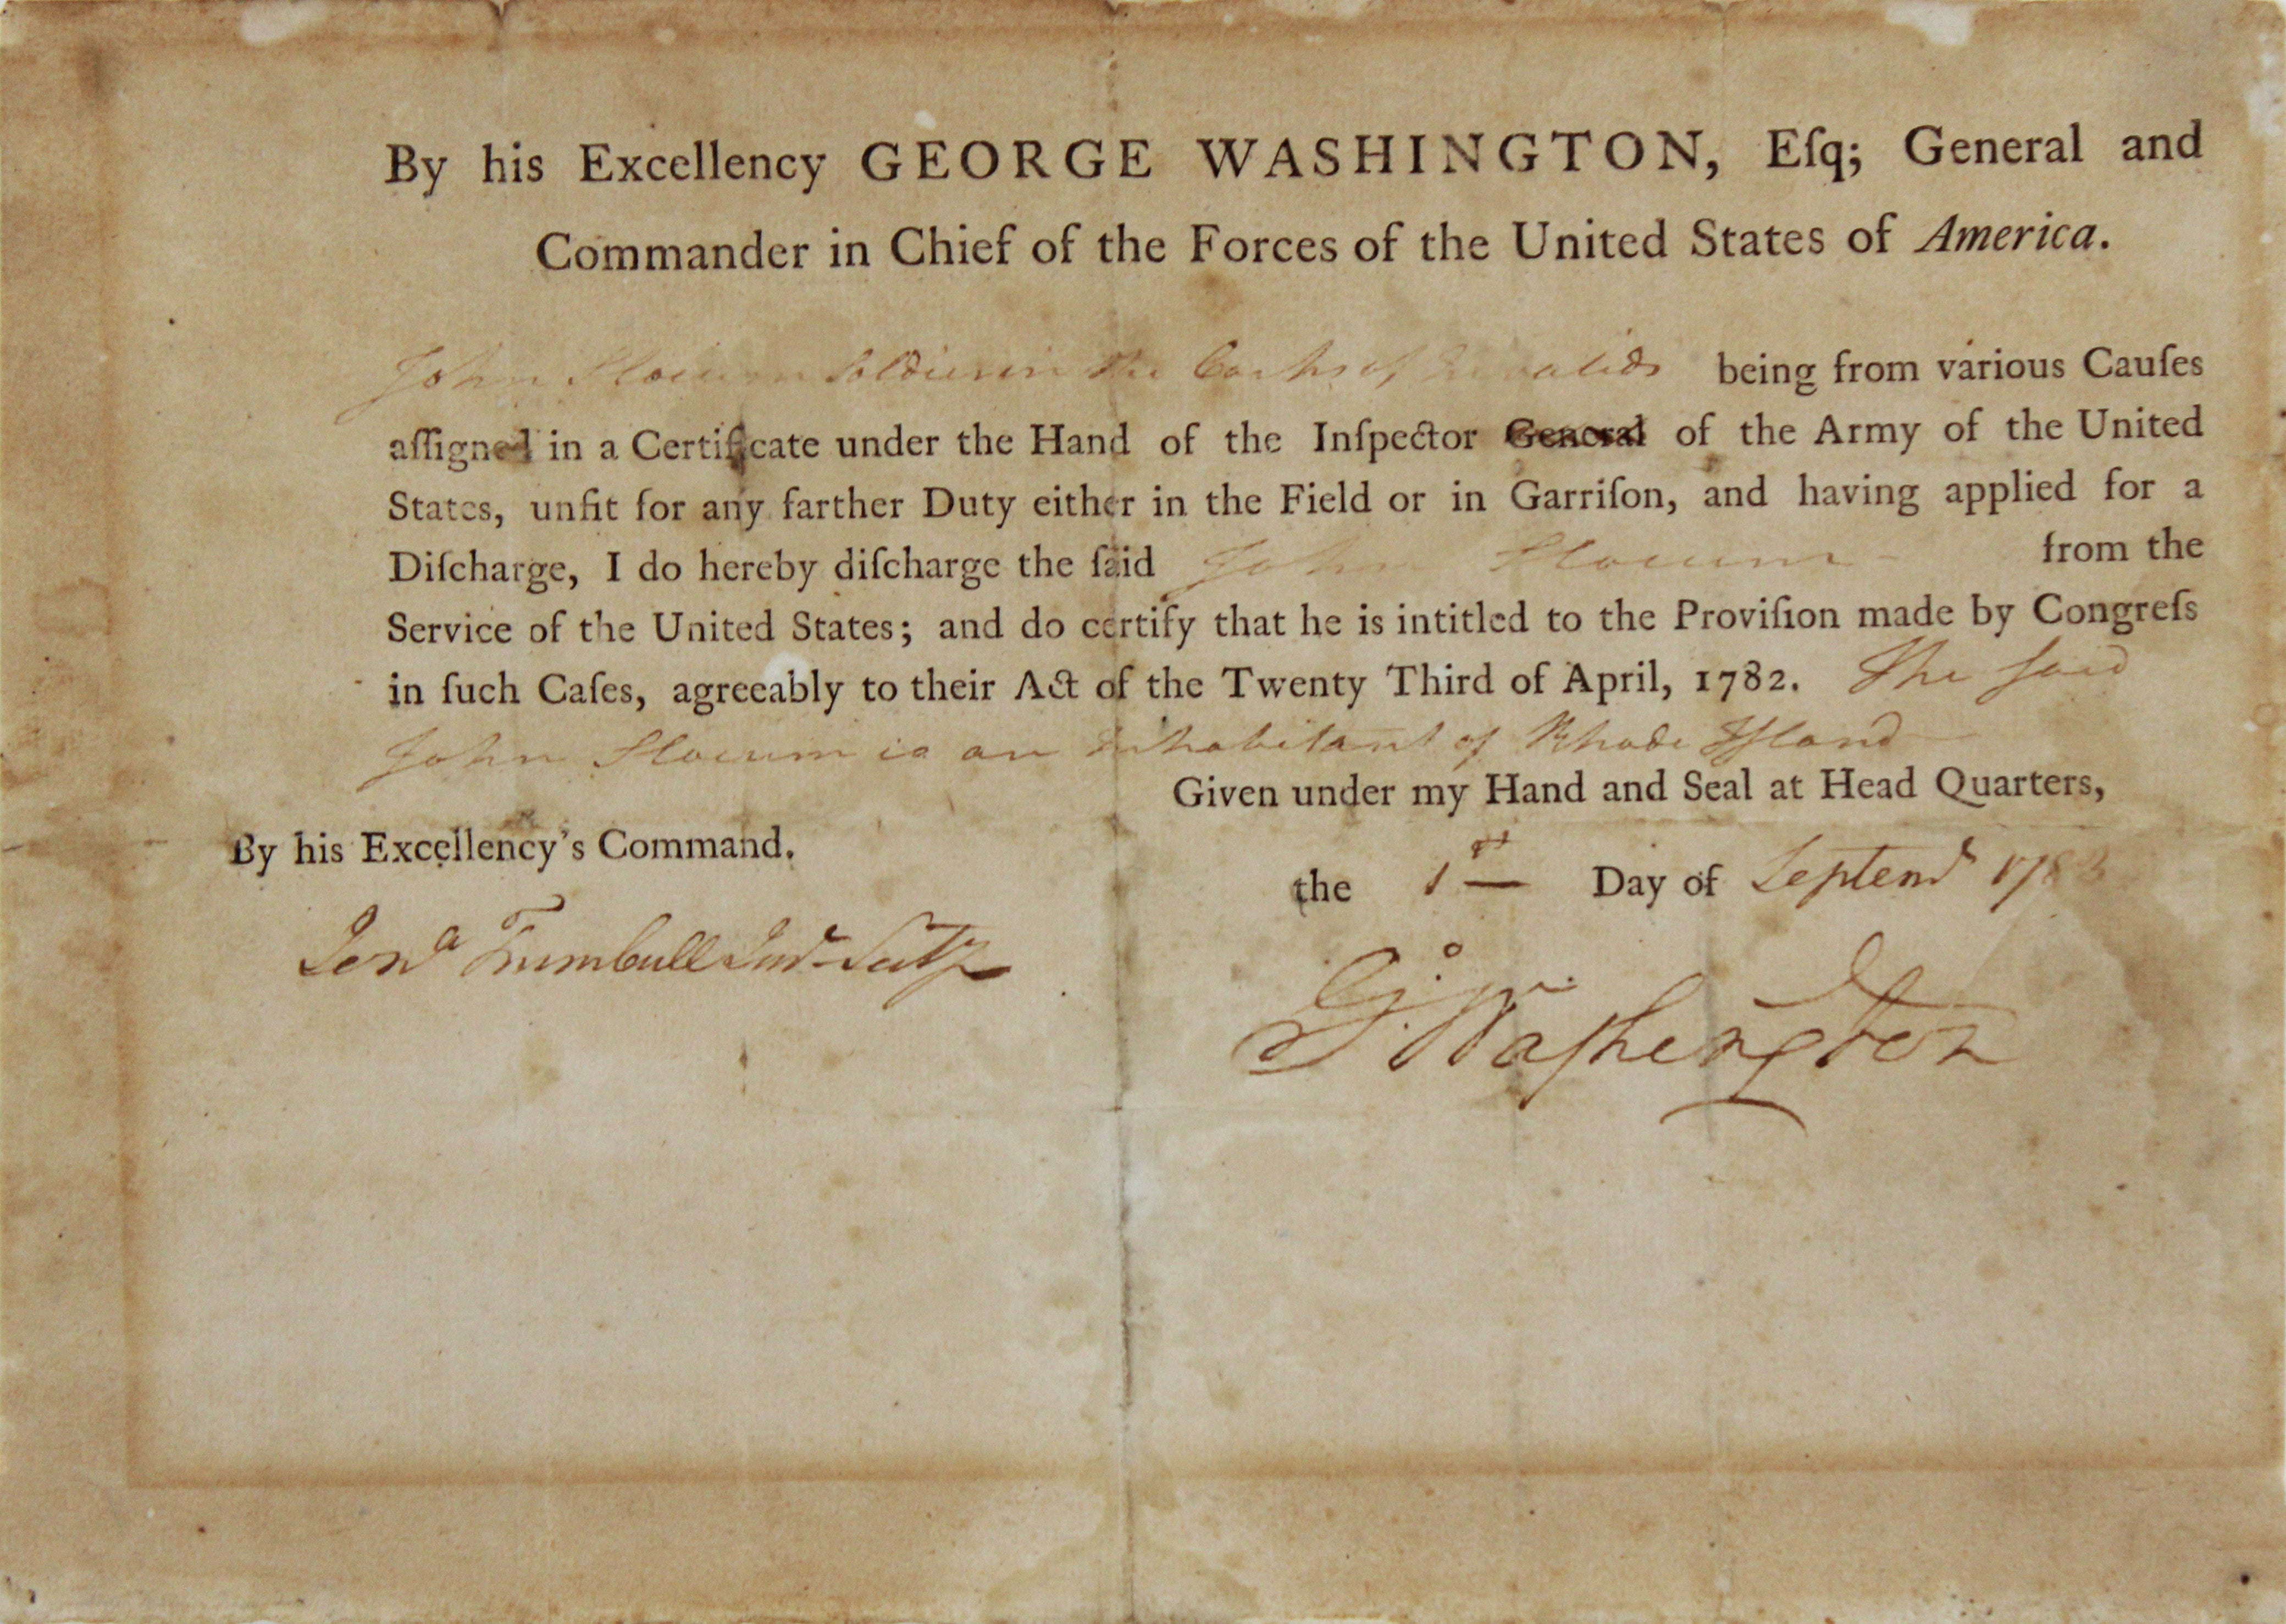 By his Excellency GEORGE WASHINGTON, Eſq; General and
Commander in Chief of the Forces of the United States of America.
John Slocum Soldier in the Corps of Invalids being from various Cauſes
aſſigned in a Certificate under the Hand of the Inſpector General of the Army of the United
States, unfit for any farther Duty either in the Field or in Garriſon, and having applied for a
Diſcharge, I do hereby diſcharge the ſaid John Slocum from the
Service of the United States; and do certify that he is intitled to the Proviſion made by Congreſs
in ſuch Caſes, agreeably to their Act of the Twenty Third of April, 1782. The ſaid
John Slocum is an inhabitant of Rhode Iſland
Given under my Hand and Seal at Head Quarters,
By his Excellency's Command.
the 1st Day of Septemr 178
Jona Trumbull Junr Secty
Go: Washington